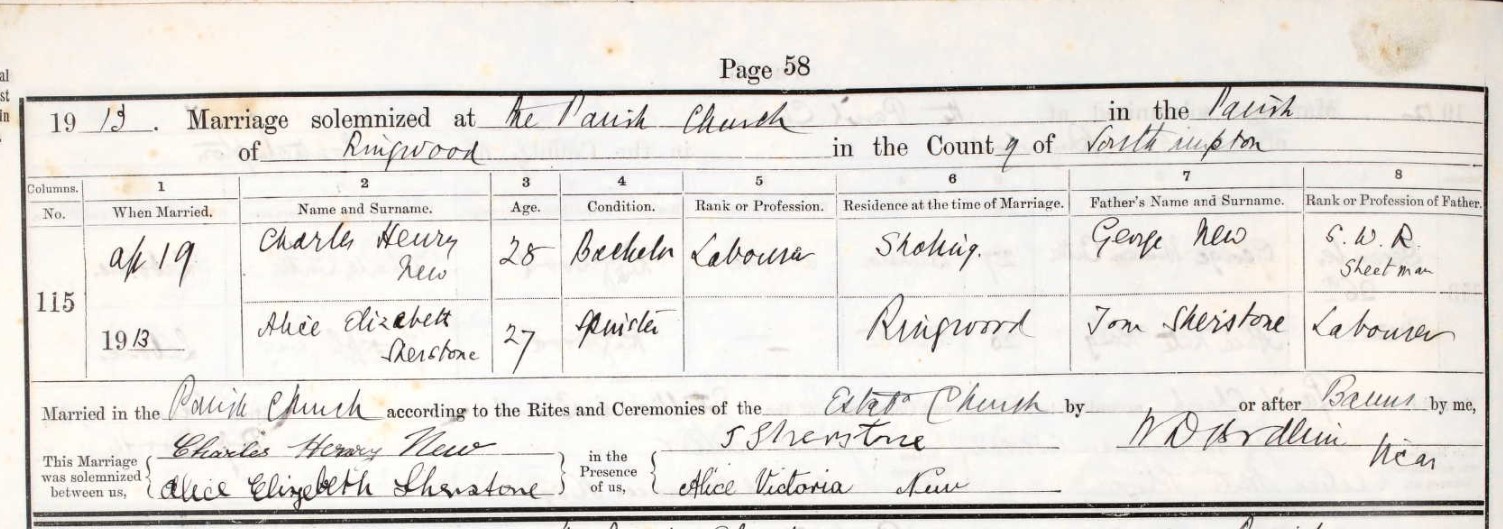 Page 58
al
st
in
19 13. Marriage solemnized at the Parish Church in the Parish
of Ringwood in the County of Southampton
Columns. 1 2 3 4 5 6 7 8
No. When Married. Name and Surname. Age. Condition. Rank or Profession. Residence at the time of Marriage. Father's Name and Surname. Rank or Profession of Father.
115
Ap 19
1913
Charles Henry
New
28 Bachelor Labourer Sholing. George New S. W. R.
Sheet man
Alice Elizabeth
Sherstone
27 Spinster Ringwood Tom Sherstone Labourer
Married in the Parish Church according to the Rites and Ceremonies of the Estabd Church by or after Banns by me,
This Marriage was solemnized between us,
Charles Henry New
Alice Elizebeth Sherstone
in the Presence of us,
T Sherstone
Alice Victoria New
Vicar